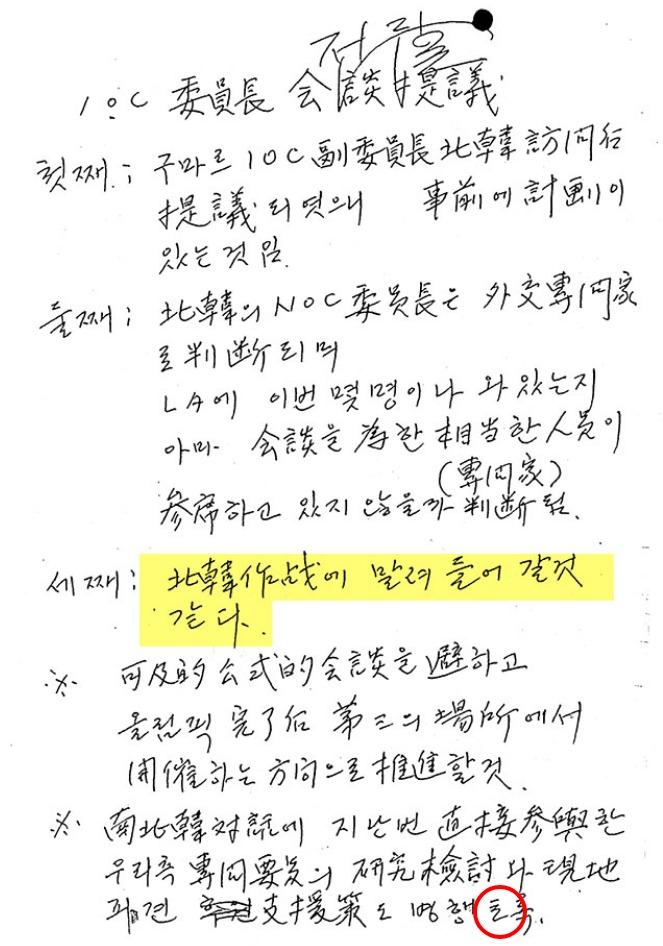 IOC 委員長 会談 提議
첫째; 구마르 IOC 副委員長 北韓訪问后
提議 되엿으니 事前에 計劃이
있는것임.
둘째; 北韓의 NOC 委员長은 外交專门家
로 判断되며
LA에 이번 몇명이나 와 있는지
아마 会談을 為한 相当한 人员이
(專门家)
参席하고 있지 않을까 判断됨.
세째; 北韓作战에 말려 들어 갈것
같다.
※ 可及的 公式的会談을 避하고
올림픽 完了后 第三의 場所에서
開催하는 方向으로 推進할것.
※ 南北韓 对話에 지난번 直接参與한
우리측 專门要员의 研究檢討와 現地
派견 支援策도 병행토록.